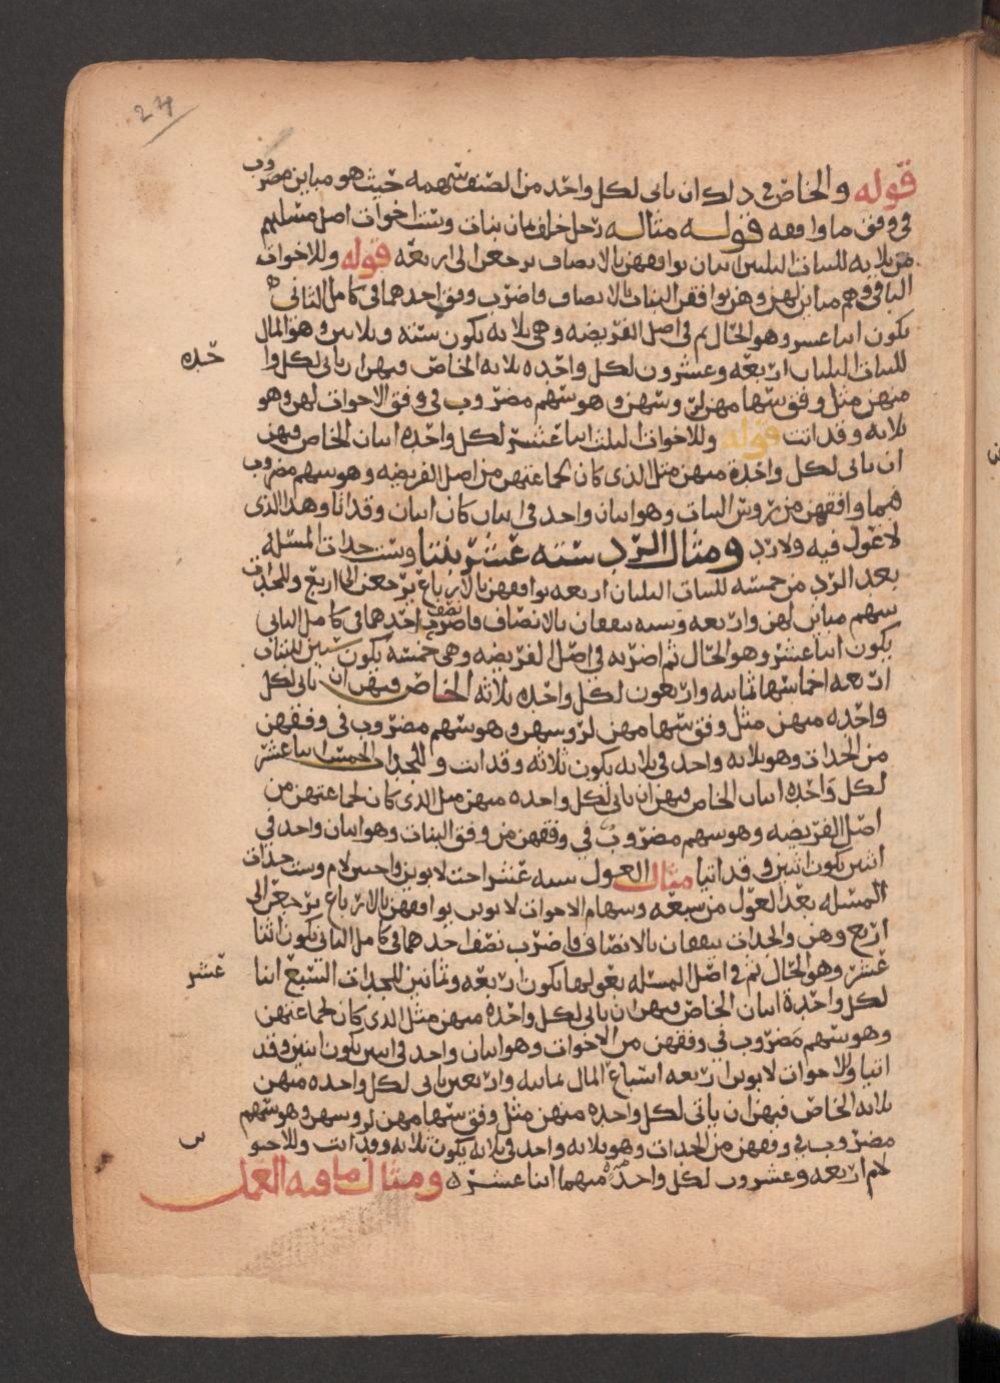 24
قوله والخاص في ذلك ان ياتي لكل واحد من الصنف سهمه حيث هو مباين مضروب
في وفق ما وافقه قوله مثاله رجل خلف ثمان بنات وست اخوات اصل مسئلتهم
من ثلاثه للبنات الثلثين اثنان يوافقهن بالانصاف يرجعن الى اربعه قوله وللاخوات
الباقي وهم مباين لهن وهن يوافقن البنات بالانصاف فاضرب وفق احدهما في كامل الثاني
يكون اثنا عشر وهو الحال ثم في اصل الفريضه وهي ثلاثه يكون سته وثلاثين وهو المال
للبنات الثلثان اربعه وعشرون لكل واحده ثلاثه الخاص فيهن ان ياتي لكل وا
حده
منهن مثل وفق سهامهن لرؤسهن وهو سهم مضروب في وفق الاخوات لهن وهو
ثلاثه وقد اتت قوله وللاخوات الثلث اثنا عشر لكل واحده اثنان الخاص فيهن
ان ياتي لكل واحدة منهن مثل الذي كان لجماعتهن من اصل الفريضه وهو سهم مضروب
فيما وافقهن من رؤس البنات وهو اثنان واحد في اثنان كان اثنان وقد اتا وهذا الذي
لا عول فيه ولا رد ومثال الرد سته عشر بنتا وست جدات المسئله
بعد الرد من خمسه للبنات الثلثان اربعه يوافقهن بالارباع يرجعن الى اربع وللجدات
سهم مباين لهن واربعه وسته يتفقان بالانصاف فاضرب نصف احدهما في كامل الثاني
يكون اثنا عشر وهو الحال ثم اضربه في اصل الفريضه وهي خمسه يكون ستين للبنات
اربعه اخماسها ثمانيه واربعون لكل واحده ثلاثه الخاص فيهن ان ياتي لكل
واحده منهن مثل وفق سهامهن لرؤسهن وهو سهم مضروب في وفقهن
من الجدات وهو ثلاثه واحد في ثلاثه يكون ثلاثه وقد اتت وللجدات الخمس اثنا عشر
لكل واحده اثنان الخاص فيهن ان ياتي لكل واحده منهن مثل الذي كان لجماعتهن من
اصل الفريضه وهو سهم مضروب في وفقهن من وفق البنات وهو اثنان واحد في
اثنين يكون اثنين وقد اتيا مثال العول سته عشر اخت لابوين واختين لام وست جدات
المسئله بعد العول من سبعه وسهام الاخوات لابوين يوافقهن بالارباع يرجعن الى
اربع وهن والجدات يتفقان بالانصاف فاضرب نصف احدهما في كامل الثاني يكون اثنا
عشر وهو الحال ثم في اصل المسئله بعولها يكون اربعه وثمانين للجدات السبع اثنا
عشر
لكل واحدة اثنان الخاص فيهن ان ياتي لكل واحده منهن مثل الذي كان لجماعتهن
وهو سهم مضروب في وفقهن من الاخوات وهو اثنان واحد في اثنين يكون اثنين وقد
اتيا وللاخوات لابوين اربعه اسباع المال ثمانيه واربعين ياتي لكل واحده منهن
ثلاثه الخاص فيهن ان ياتي لكل واحده منهن مثل وفق سهامهن لرؤسهن وهو سهم
مضروب في وفقهن من الجدات وهو ثلاثه واحد في ثلاثه يكون ثلاثه وقد اتت وللاختو
لام اربعه وعشرون لكل واحده منهما اثنا عشره ومثال ما فيه العمل